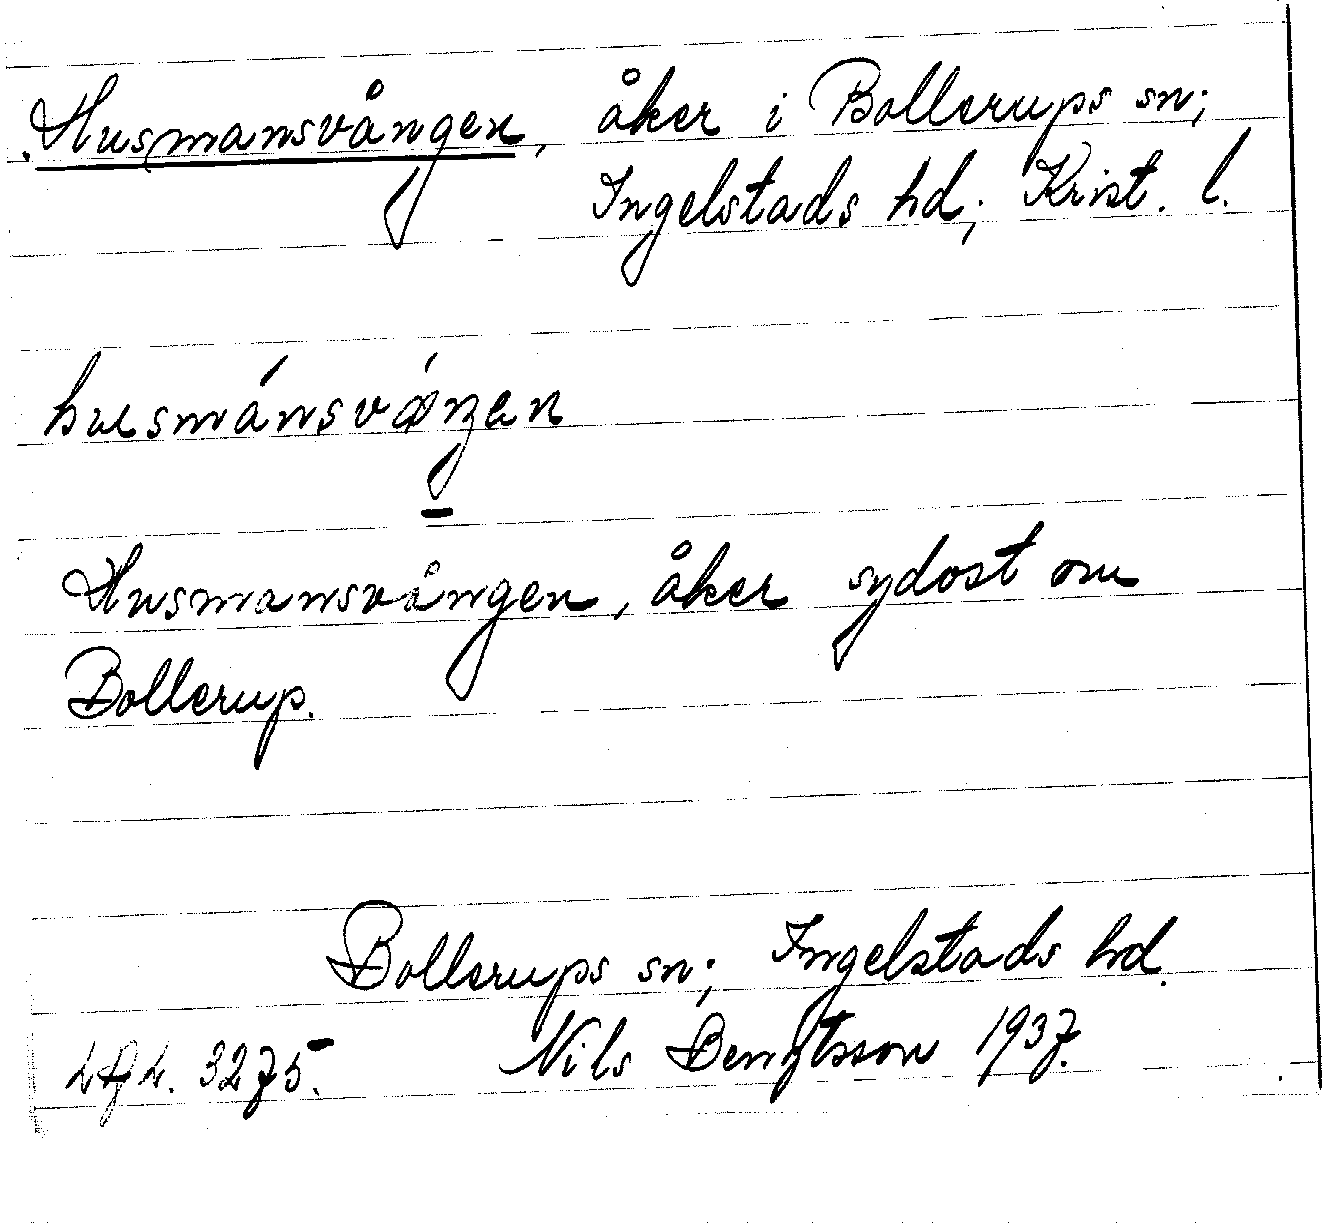 Husmansvången, åker i Bollerups sn;
Ingelstads hd; Krist. l.
husmánsvángen
Husmansvången, åker sydost om
Bollerup.
Bollerups sn; Ingelstads hd.
3275. Nils Bengtsson 1937.